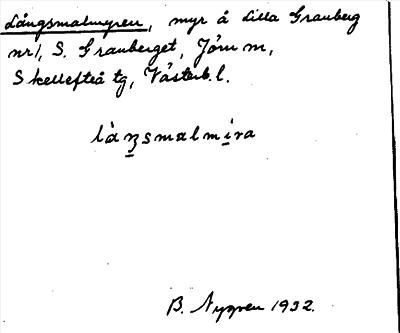 Långsmalmyren, myr å Lilla Granberg
nr 1, S. Granberget, Jörn m,
Skellefteå tg, Västerb. l.
B. Nygren 1932.